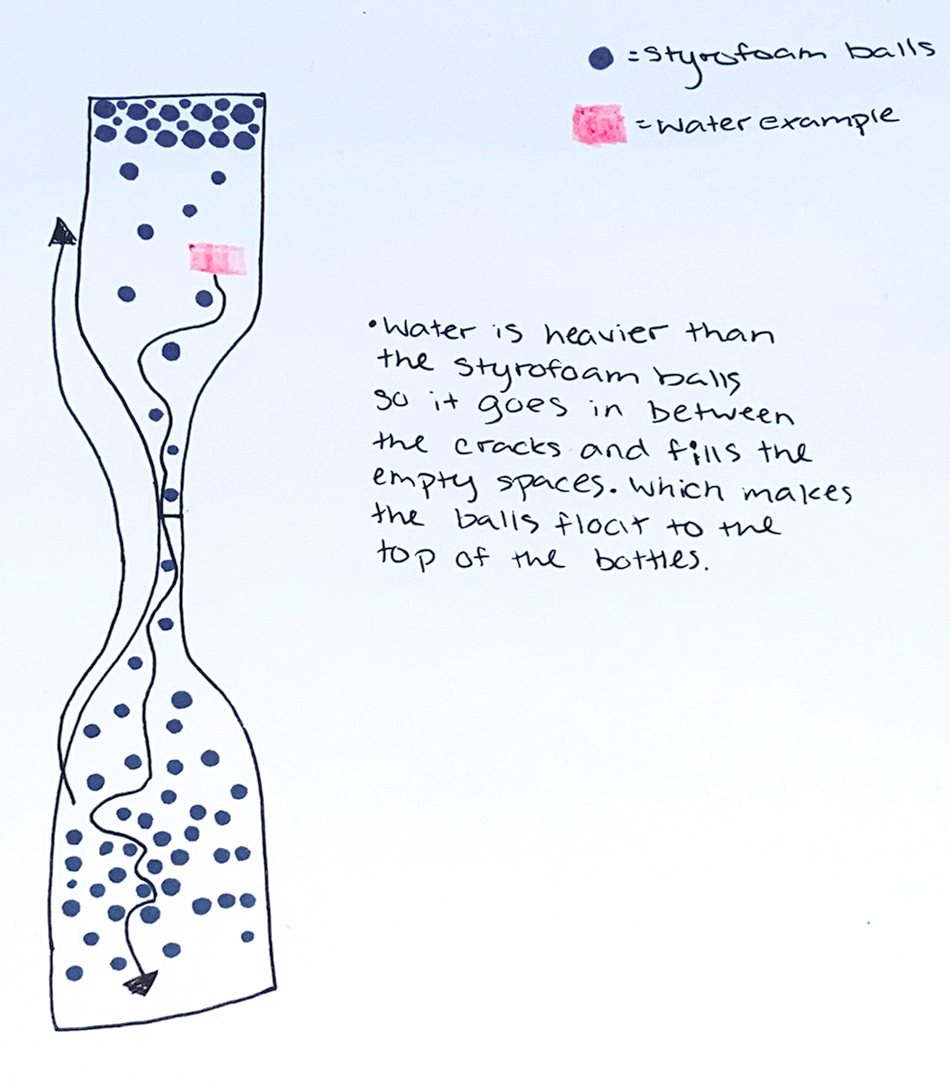 = Styrofoam balls
= water example
• Water is heavier than
the styrofoam balls
so it goes in between
the cracks and fills the
empty spaces. Which makes
the balls float to the
top of the bottles.